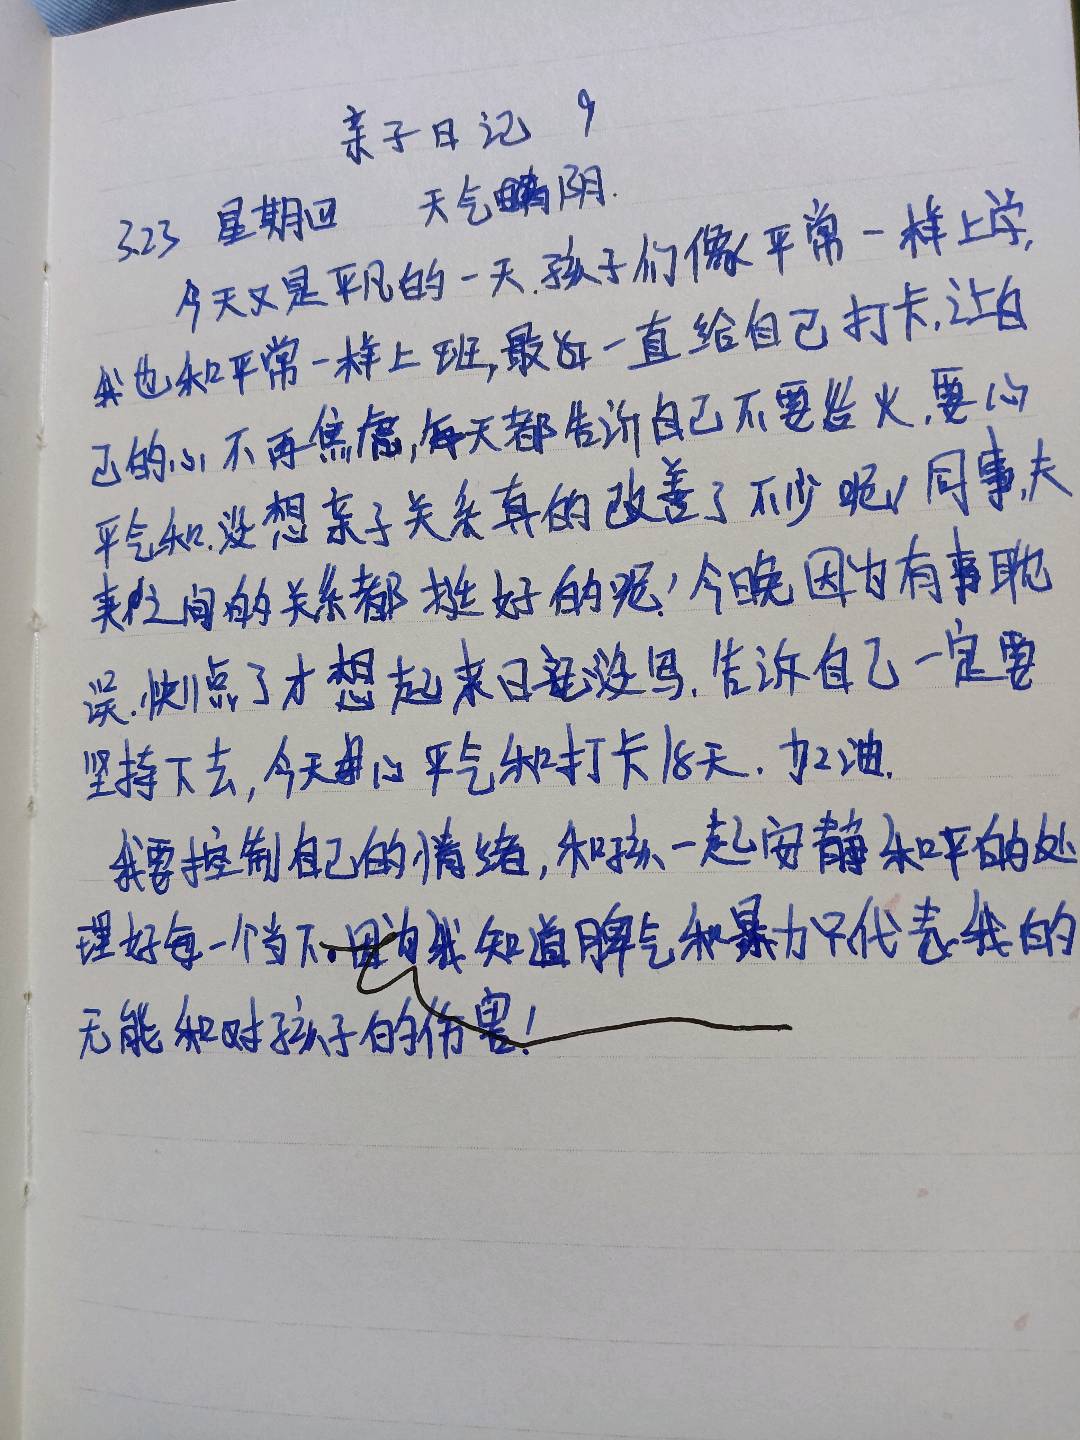 亲子日记 9
3.23 星期四 天气 阴.
今天又是平凡的一天.孩子们像平常一样上学,
我也和平常一样上班,最近一直给自己打卡.让自
己的心不再焦虑,每天都告诉自己不要发火.要心
平气和.没想亲子关系真的改善了不少呢!同事,夫
妻之间的关系都挺好的呢!今晚因为有事耽
误.快 点了才想起来日记没写.告诉自己一定要
坚持下去,今天 心平气和打卡18天.加油.
我要控制自己的情绪,和孩一起安静和平的处
理好每一个当下.因为我知道脾气和暴力只代表我的
无能和对孩子的伤害!